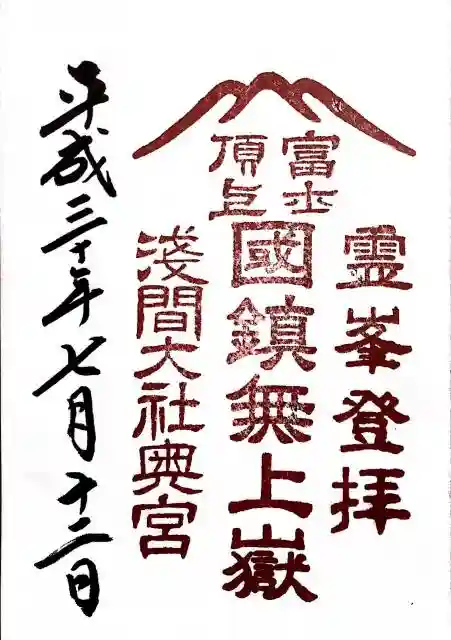 霊峯登拝
富士
頂上
國鎮無上嶽
淺間大社奥宮
平成三十年七月十二日